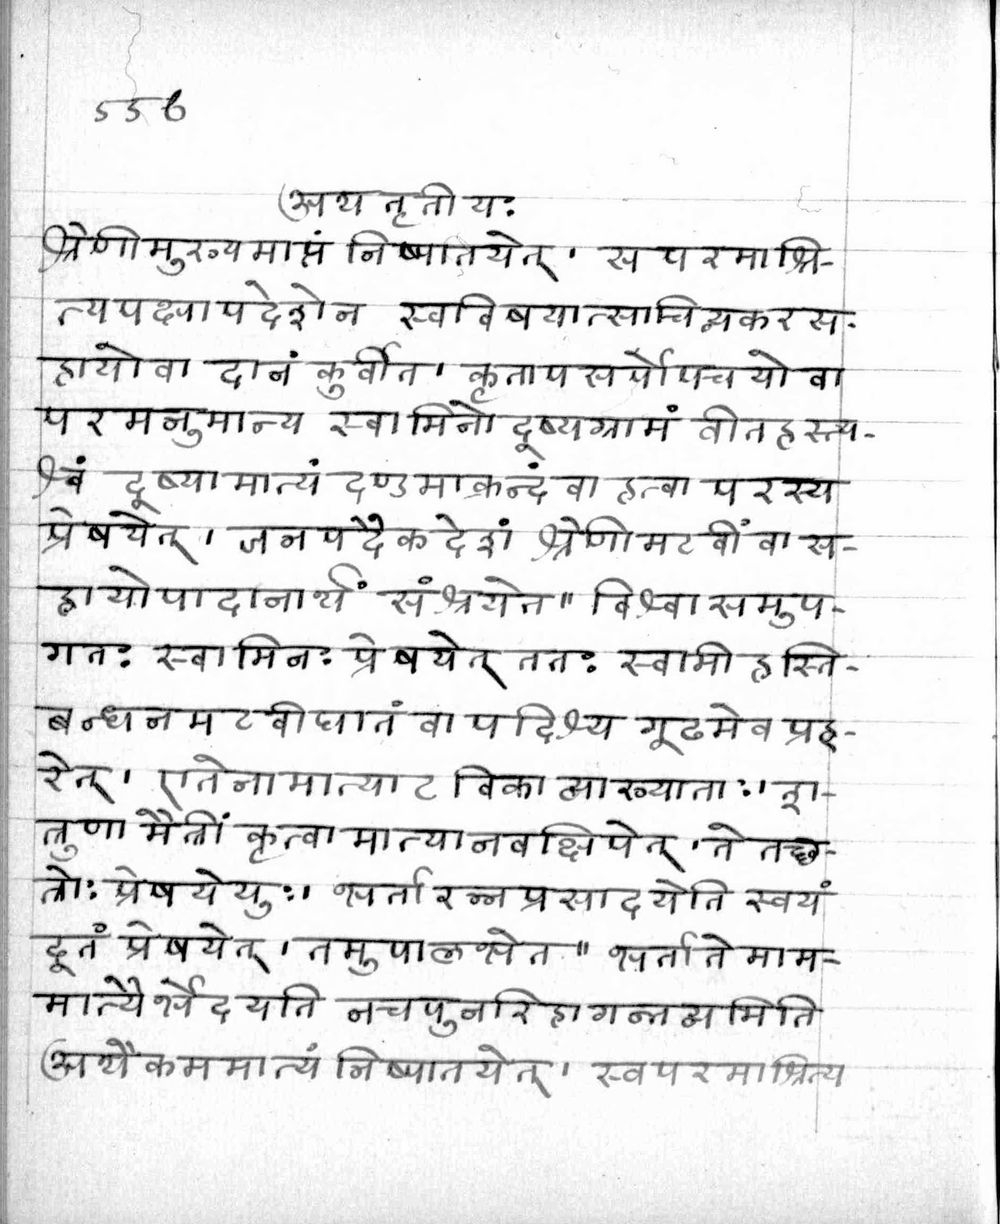 556
अथ तृतीयः
श्रेणीमुख्यमाप्तं निष्पातयेत्। स परमाश्रि-
त्य पक्षापदेशेन स्वविषयात्साचिव्यकरस-
हायो वा दानं कुर्वीत। कृतापसर्पोपचयो वा
परमनुमान्य स्वामिनो दूष्यग्रामं वीतहस्त्य-
श्वं दूष्यामात्यं दण्डमाक्रन्दं वा हत्वा परस्य
प्रेषयेत्। जनपदैकदेशं श्रेणीमटवीं वा स-
हायोपादानार्थं संश्रयेत॥ विश्वासमुप-
गतः स्वामिनः प्रेषयेत् ततः स्वामी हस्ति-
बन्धनमटवीघातं वापदिश्य गूढमेव प्रह-
रेत्। एतेनामात्याटविका व्याख्याताः। श-
त्रुणा मैत्रीं कृत्वामात्यानवक्षिपेत्। ते तच्छ-
त्रोः प्रेषयेयुः। भर्तारन्न प्रसादयेति स्वयं
दूतं प्रेषयेत्। तमुपालभेत॥ भर्ता ते माम-
मात्यैर्भेदयति नच पुनरिहागन्तव्यमिति
अथैकममात्यं निष्पातयेत्। स्वपरमाश्रित्य